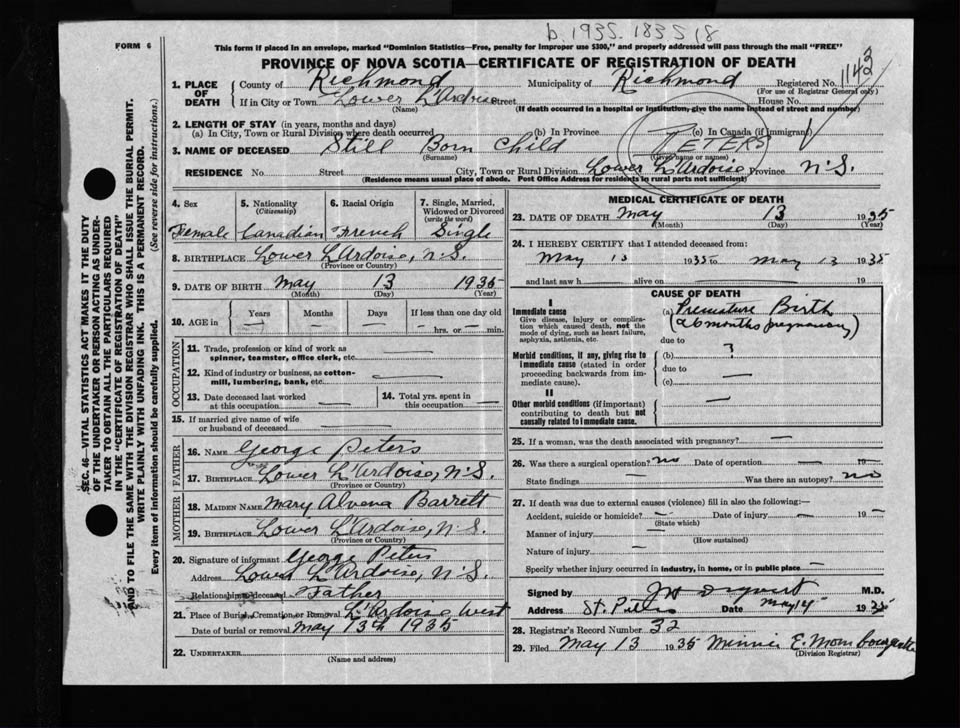 b. 1935. 183518
FORM 6
This form if placed in an envelope, marked "Dominion Statistics—Free, penalty for improper use $300," and properly addressed will pass through the mail "FREE"
PROVINCE OF NOVA SCOTIA—CERTIFICATE OF REGISTRATION OF DEATH
1. PLACE OF DEATH County of Richmond Municipality of Richmond Registered No.
(For use of Registrar General only)
If in City or Town Lower L'Ardoise Street House No.
(Name) (If death occurred in a hospital or institution, give the name instead of street and number)
2. LENGTH OF STAY (in years, months and days)
(a) In City, Town or Rural Division where death occurred (b) In Province (c) In Canada (if Immigrant)
PETERS
3. NAME OF DECEASED Still Born Child
(Surname) (Given name or names)
RESIDENCE No. Street City, Town or Rural Division Lower L'Ardoise Province N.S.
(Residence means usual place of abode. Post Office Address for residents in rural parts not sufficient)
SEC. 46—VITAL STATISTICS ACT MAKES IT THE DUTY
OF THE UNDERTAKER OR PERSON ACTING AS UNDER-
TAKER TO OBTAIN ALL THE PARTICULARS REQUIRED
IN THE "CERTIFICATE OF REGISTRATION OF DEATH"
AND TO FILE THE SAME WITH THE DIVISION REGISTRAR WHO SHALL ISSUE THE BURIAL PERMIT.
WRITE PLAINLY WITH UNFADING INK. THIS IS A PERMANENT RECORD.
Every item of information should be carefully supplied. (See reverse side for instructions.)
4. Sex 5. Nationality (Citizenship) 6. Racial Origin 7. Single, Married, Widowed or Divorced (write the word)
Female Canadian French Single
8. BIRTHPLACE Lower L'Ardoise, N.S.
(Province or Country)
9. DATE OF BIRTH May 13 1935
(Month) (Day) (Year)
10. AGE in Years Months Days If less than one day old
— — — hrs. or — min.
OCCUPATION
11. Trade, profession or kind of work as spinner, teamster, office clerk, etc. —
12. Kind of industry or business, as cotton-mill, lumbering, bank, etc. —
13. Date deceased last worked at this occupation — 14. Total yrs. spent in this occupation —
15. If married give name of wife or husband of deceased —
FATHER
16. NAME George Peters
17. BIRTHPLACE Lower L'Ardoise, N.S.
(Province or Country)
MOTHER
18. MAIDEN NAME Mary Alvena Barrett
19. BIRTHPLACE Lower L'Ardoise, N.S.
(Province or Country)
20. Signature of informant George Peters
Address Lower L'Ardoise, N.S.
Relationship to deceased Father
21. Place of Burial, Cremation or Removal L'Ardoise West
Date of burial or removal May 13th 1935
22. UNDERTAKER
(Name and address)
MEDICAL CERTIFICATE OF DEATH
23. DATE OF DEATH May 13 1935
(Month) (Day) (Year)
24. I HEREBY CERTIFY that I attended deceased from:
May 13 1935 to May 13 1935
and last saw h alive on 19
CAUSE OF DEATH
I
Immediate cause (a) Premature Birth
Give disease, injury or complication which caused death, not the mode of dying, such as heart failure, asphyxia, asthenia, etc.
(26 months pregnancy)
due to
Morbid conditions, if any, giving rise to immediate cause (stated in order proceeding backwards from immediate cause).
(b) ?
due to
(c) —
II
Other morbid conditions (if important) contributing to death but not causally related to immediate cause. —
25. If a woman, was the death associated with pregnancy? —
26. Was there a surgical operation? no Date of operation — 19 —
State findings — Was there an autopsy? no
27. If death was due to external causes (violence) fill in also the following:—
Accident, suicide or homicide? — Date of injury — 19 —
(State which)
Manner of injury
(How sustained)
Nature of injury —
Specify whether injury occurred in industry, in home, or in public place —
Signed by M.D.
Address St. Peters Date May 14 1935
28. Registrar's Record Number 32
29. Filed May 13 1935 Minnie E. Mombourquette
(Division Registrar)